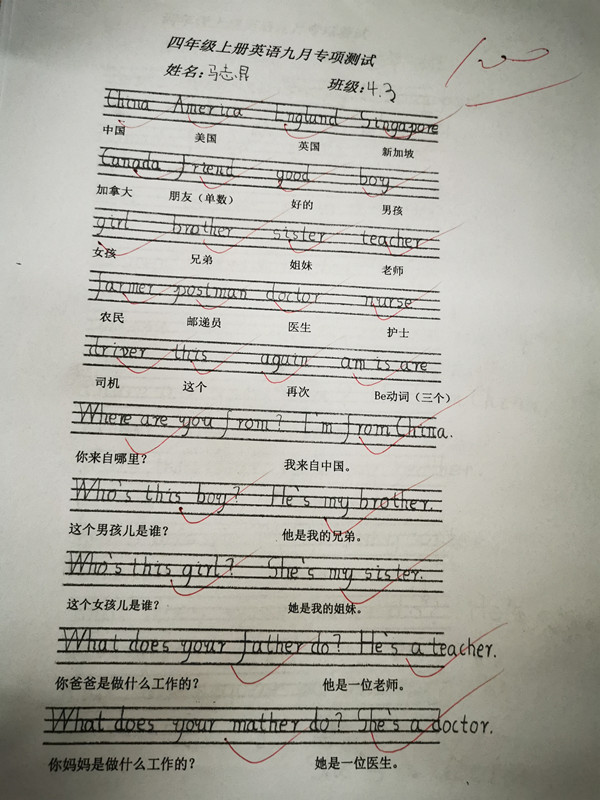 四年级上册英语九月专项测试
100
姓名:马志昇 班级:4.3
China America England Singapore
中国 美国 英国 新加坡
Canada friend good boy
加拿大 朋友（单数） 好的 男孩
girl brother sister teacher
女孩 兄弟 姐妹 老师
farmer postman doctor nurse
农民 邮递员 医生 护士
driver this again am is are
司机 这个 再次 Be动词（三个）
Where are you from? I'm from China.
你来自哪里? 我来自中国。
Who's this boy? He's my brother.
这个男孩儿是谁? 他是我的兄弟。
Who's this girl? She's my sister.
这个女孩儿是谁? 她是我的姐妹。
What does your father do? He's a teacher.
你爸爸是做什么工作的? 他是一位老师。
What does your mather do? She's a doctor.
你妈妈是做什么工作的? 她是一位医生。